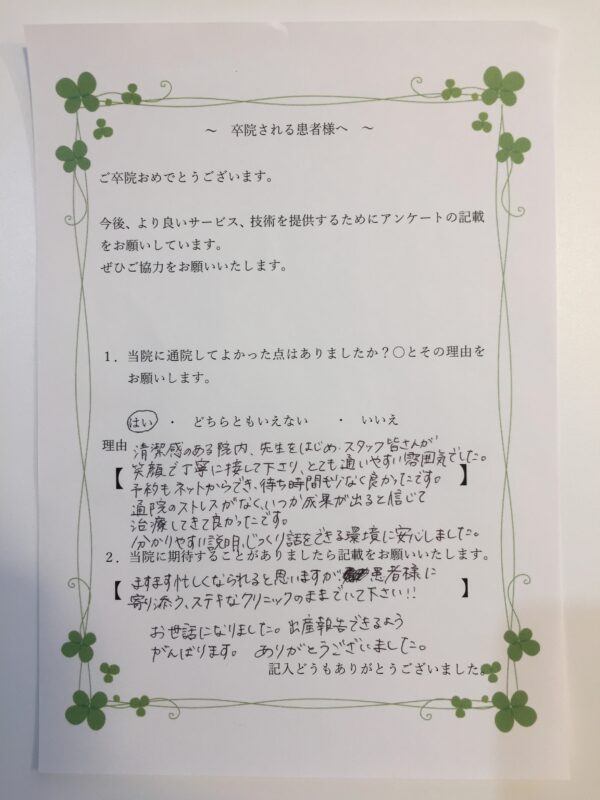 ～　卒院される患者様へ　～
ご卒院おめでとうございます。
今後、より良いサービス、技術を提供するためにアンケートの記載
をお願いしています。
ぜひご協力をお願いいたします。
１．当院に通院してよかった点はありましたか？○とその理由を
お願いします。
はい　・　どちらともいえない　・　いいえ
理由 清潔感のある院内、先生をはじめ、スタッフ皆さんが
【笑顔で丁寧に接して下さり、とても通いやすい雰囲気でした。
予約もネットからでき、待ち時間もなく良かったです。】
通院のストレスがなく、いつか成果が出ると信じて
治療してきて良かったです。
分かりやすい説明、じっくり話をできる環境に安心しました。
２．当院に期待することがありましたら記載をお願いいたします。
【ますます忙しくなられると思いますが患者様に
寄り添う、ステキなクリニックのままでいて下さい!!】
お世話になりました。出産報告できるよう
がんばります。　ありがとうございました。
記入どうもありがとうございました。